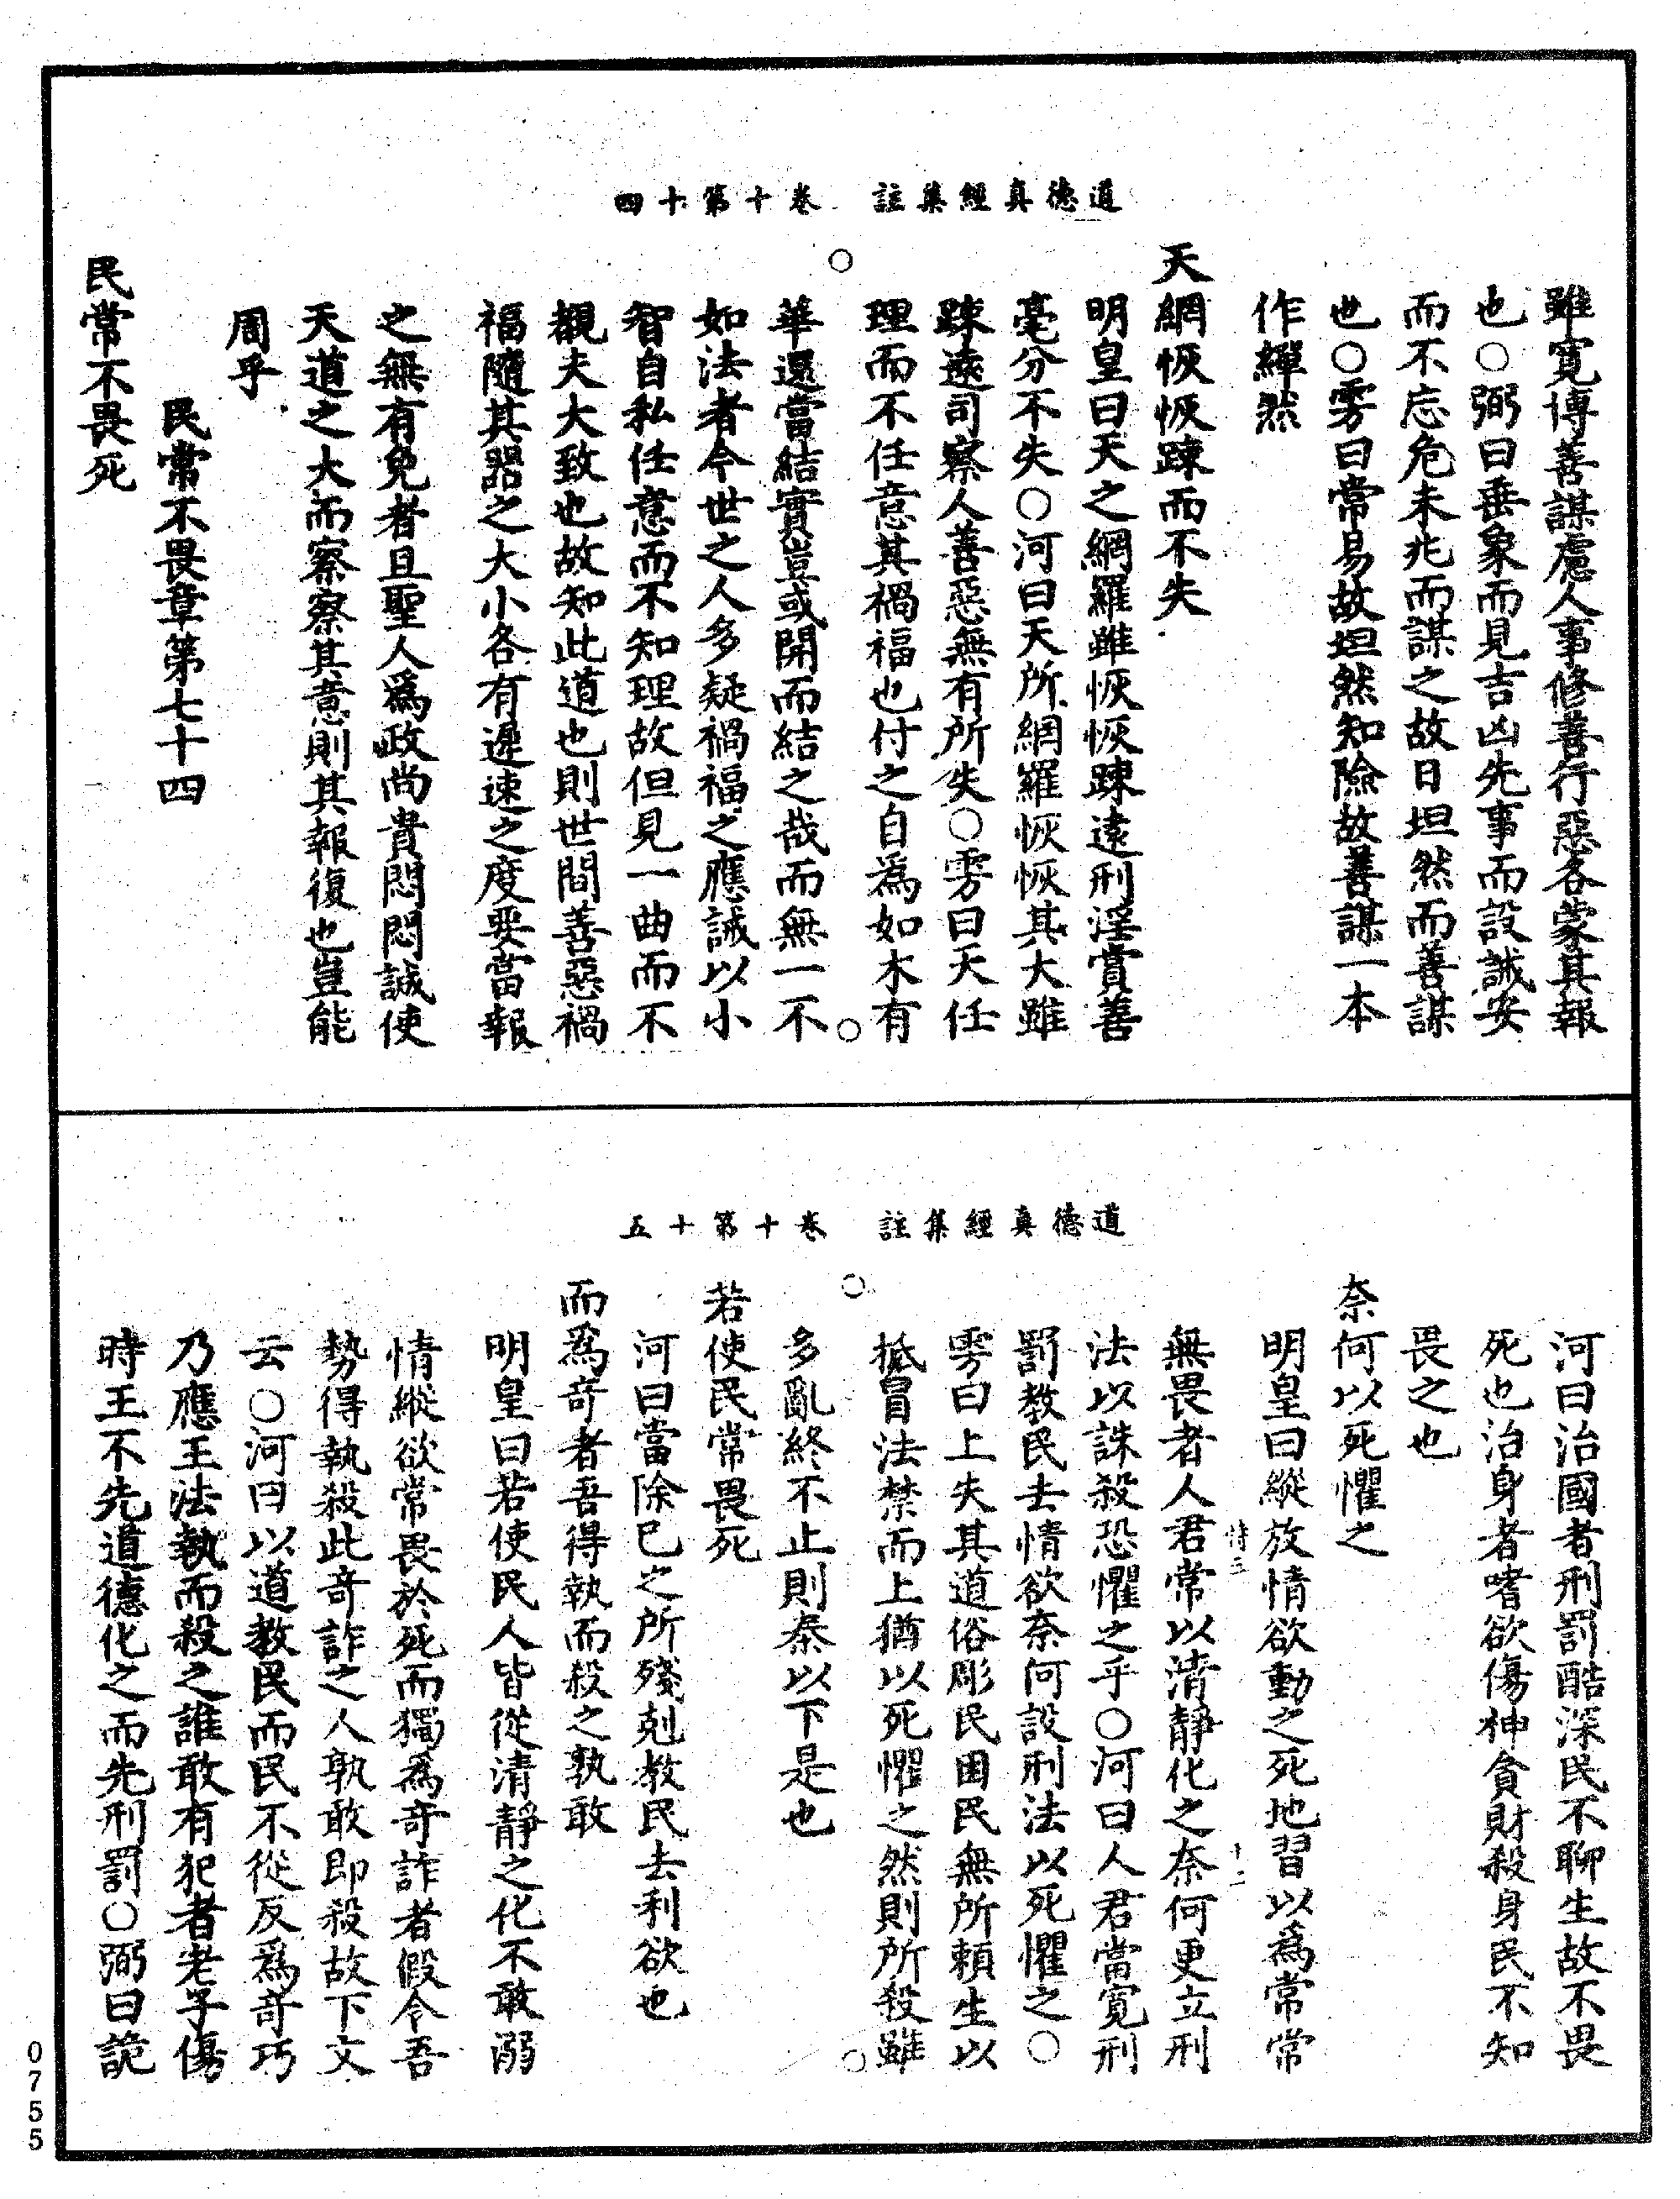 道德真經集註　卷十第十四
雖寬博善謀慮人事修善行惡各蒙其報
也○弼曰垂象而見吉凶先事而設誡安
而不忘危未兆而謀之故曰坦然而善謀
也○雱曰常易故坦然知險故善謀一本
作繟然
天網恢恢踈而不失
明皇曰天之網羅雖恢恢踈遠刑淫賞善
毫分不失○河曰天所網羅恢恢其大雖
踈遠司察人善惡無有所失○雱曰天任
理而不任意其禍福也付之自為如木有
華還當結實豈或開而結之哉而無一不
如法者今世之人多疑禍福之應誠以小
智自私任意而不知理故但見一曲而不
覩夫大致也故知此道也則世間善惡禍
福隨其器之大小各有遲速之度要當報
之無有免者且聖人爲政尚貴悶悶誠使
天道之大而察察其意則其報復也豈能
周乎
民常不畏章第七十四
民常不畏死
道德真經集註　卷十第十五
河曰治國者刑罰酷深民不聊生故不畏
死也治身者嗜欲傷神貪財殺身民不知
畏之也
奈何以死懼之
明皇曰縱放情欲動之死地習以爲常常
十二
無畏者人君常以清靜化之奈何更立刑
法以誅殺恐懼之乎○河曰人君當寬刑
罰教民去情欲奈何設刑法以死懼之○
雱曰上失其道俗彫民困民無所賴生以
抵冒法禁而上猶以死懼之然則所殺雖
多亂終不止則秦以下是也
若使民常畏死
河曰當除已之所殘剋教民去利欲也
而為奇者吾得執而殺之孰敢
明皇曰若使民人皆從清靜之化不敢溺
情縱欲常畏於死而獨爲奇詐者假令吾
勢得執殺此奇詐之人孰敢即殺故下文
云○河曰以道教民而民不從反爲奇巧
乃應王法執而殺之誰敢有犯者老子傷
時王不先道德化之而先刑罰○弼曰詭
0755